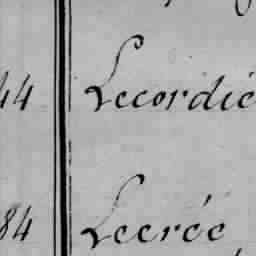 44 Lecordié
84 Lecrée